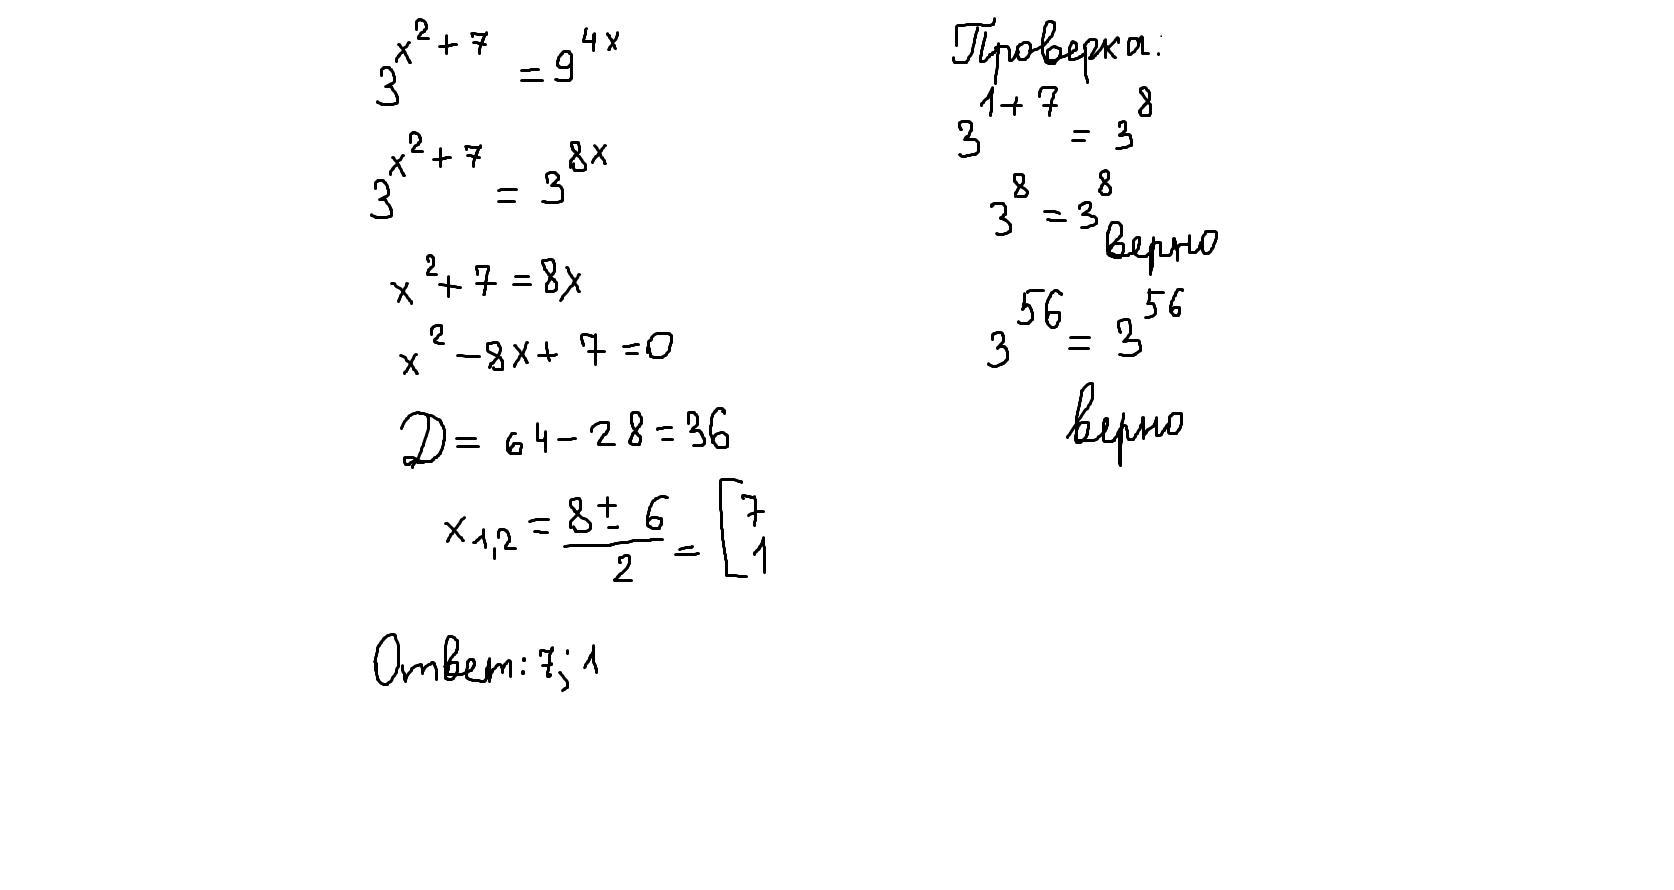 3^{x^2+7} = 9^{4x}
3^{x^2+7} = 3^{8x}
x^2+7=8x
x^2-8x+7=0
D= 64-28=36
x_{1,2} = \frac{8±6}{2} = [7 1
Ответ: 7; 1
Проверка:
3^{1+7} = 3^8
3^8=3^8
верно
3^{56} = 3^{56}
верно